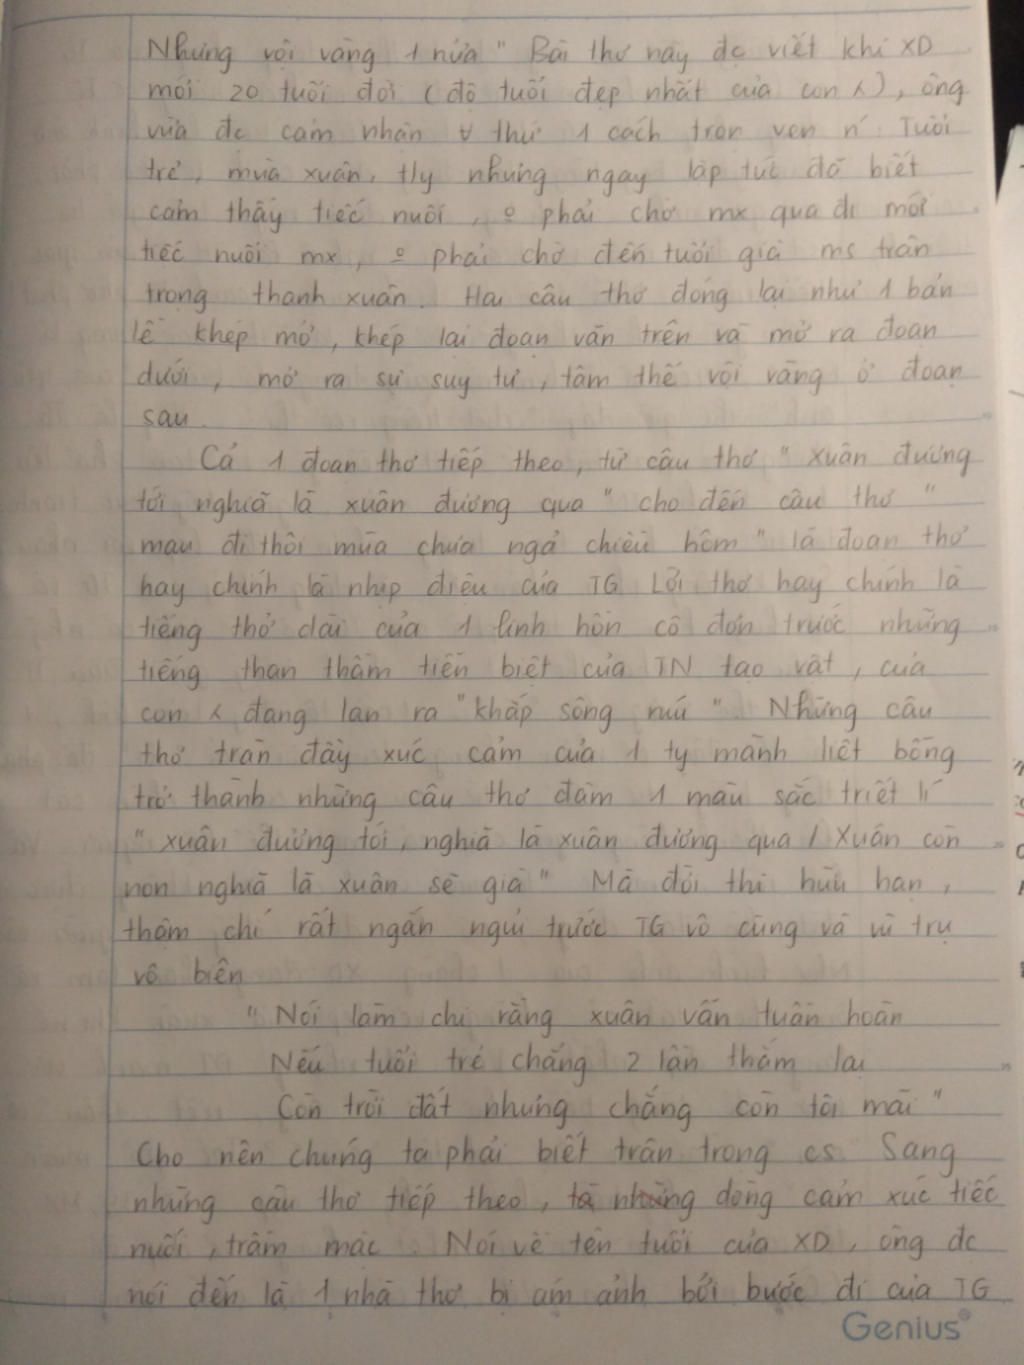 Nhưng vội vàng 1 nửa " Bài thơ này đc viết khi XD
mới 20 tuổi đời (độ tuổi đẹp nhất của con λ), ông
vừa đc cảm nhận ∀ thứ 1 cách trọn vẹn n' Tuổi
trẻ, mùa xuân, ty nhưng ngay lập tức đã biết
cảm thấy tiếc nuối, o phải chờ mx qua đi mới
tiếc nuối mx, o phải chờ đến tuổi già ms trân
trọng thanh xuân. Hai câu thơ đóng lại như 1 bản
lề khép mở, khép lại đoạn văn trên và mở ra đoạn
dưới, mở ra sự suy tư, tâm thế vội vàng ở đoạn
sau.
Cả 1 đoạn thơ tiếp theo, từ câu thơ " xuân đương
tới nghĩa là xuân đương qua " cho đến câu thơ "
mau đi thôi mùa chưa ngả chiều hôm " là đoạn thơ
hay chính là nhịp điệu của TG Lời thơ hay chính là
tiếng thở dài của 1 linh hồn cô đơn trước những
tiếng than thầm tiễn biệt của TN tạo vật, của
con λ đang lan ra "khắp sông núi". Những câu
thơ tràn đầy xúc cảm của 1 ty mãnh liệt bỗng
trở thành những câu thơ đậm 1 màu sắc triết lí
" xuân đương tới, nghĩa là xuân đương qua / Xuân còn
non nghĩa là xuân sẽ già " Mà đời thì hữu hạn,
thậm chí rất ngắn ngủi trước TG vô cùng và vũ trụ
vô biên
" Nói làm chi rằng xuân vẫn tuần hoàn
Nếu tuổi trẻ chẳng 2 lần thắm lại
Còn trời đất nhưng chẳng còn tôi mãi "
Cho nên chúng ta phải biết trân trọng cs. Sang
những câu thơ tiếp theo, là những dòng cảm xúc tiếc
nuối, trầm mặc. Nói về tên tuổi của XD, ông đc
nói đến là 1 nhà thơ bị ám ảnh bởi bước đi của TG
Genius